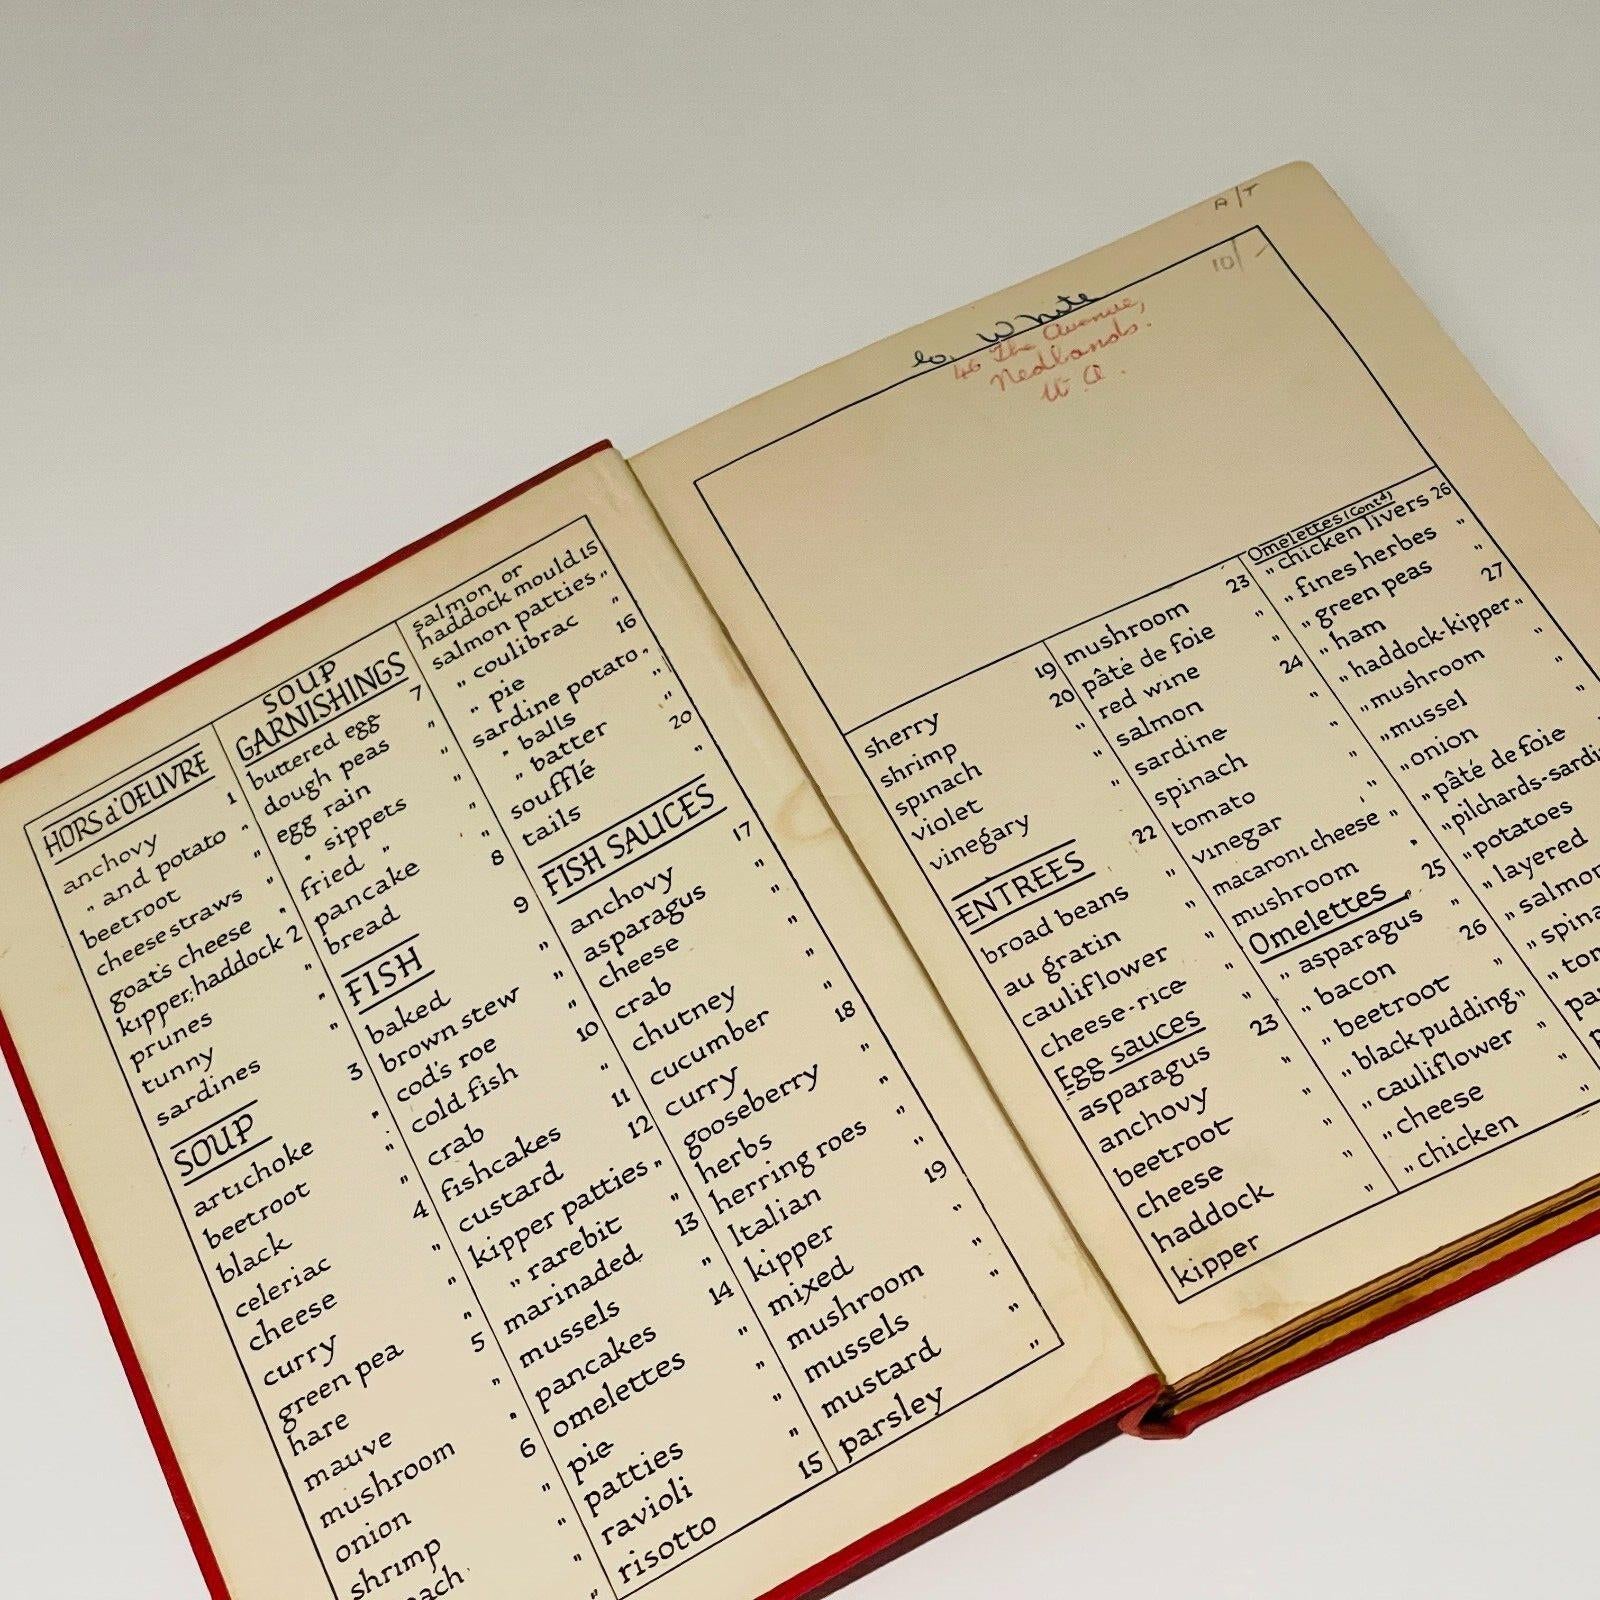 HORS d'OEUVRE
anchovy 1
„ and potato „
beetroot „
cheese straws „
goat's cheese „
kipper, haddock 2
prunes „
tunny „
sardines „
SOUP
artichoke 3
beetroot „
black „
celeriac „
cheese 4
curry „
green pea „
hare „
mauve 5
mushroom „
onion „
shrimp 6
SOUP
GARNISHINGS
buttered egg 7
dough peas „
egg rain „
„ sippets „
fried „ „
pancake „
bread 8
FISH
baked 9
brown stew „
cod's roe „
cold fish „
crab 10
fishcakes „
custard 11
kipper patties 12
„ rarebit „
marinaded „
mussels 13
pancakes „
omelettes 14
pie „
patties „
ravioli „
risotto „
salmon or
haddock mould 15
salmon patties „
„ coulibrac „
„ pie 16
sardine potato „
„ balls „
„ batter „
soufflé 20
tails „
FISH SAUCES
anchovy 17
asparagus „
cheese „
crab „
chutney „
cucumber „
curry 18
gooseberry „
herbs „
herring roes „
Italian „
kipper 19
mixed „
mushroom „
mussels „
mustard „
parsley „
15
A/T
10/-
White
46 The Avenue,
Nedlands.
W.A.
sherry 19
shrimp 20
spinach „
violet „
vinegary „
ENTREES 22
broad beans „
au gratin „
cauliflower „
cheese-rice „
Egg sauces
asparagus 23
anchovy „
beetroot „
cheese „
haddock „
kipper „
mushroom 23
pâté de foie „
red wine „
salmon 24
sardine „
spinach „
tomato „
vinegar „
macaroni cheese „
mushroom „
Omelettes 25
„ asparagus „
„ bacon 26
„ beetroot „
„ black pudding „
„ cauliflower „
„ cheese „
„ chicken „
Omelettes (Contd)
„ chicken livers 26
„ fines herbes „
„ green peas „
„ ham 27
„ haddock-kipper „
„ mushroom „
„ mussel „
„ onion „
„ pâté de foie
„ pilchards-
„ potatoes
„ layered